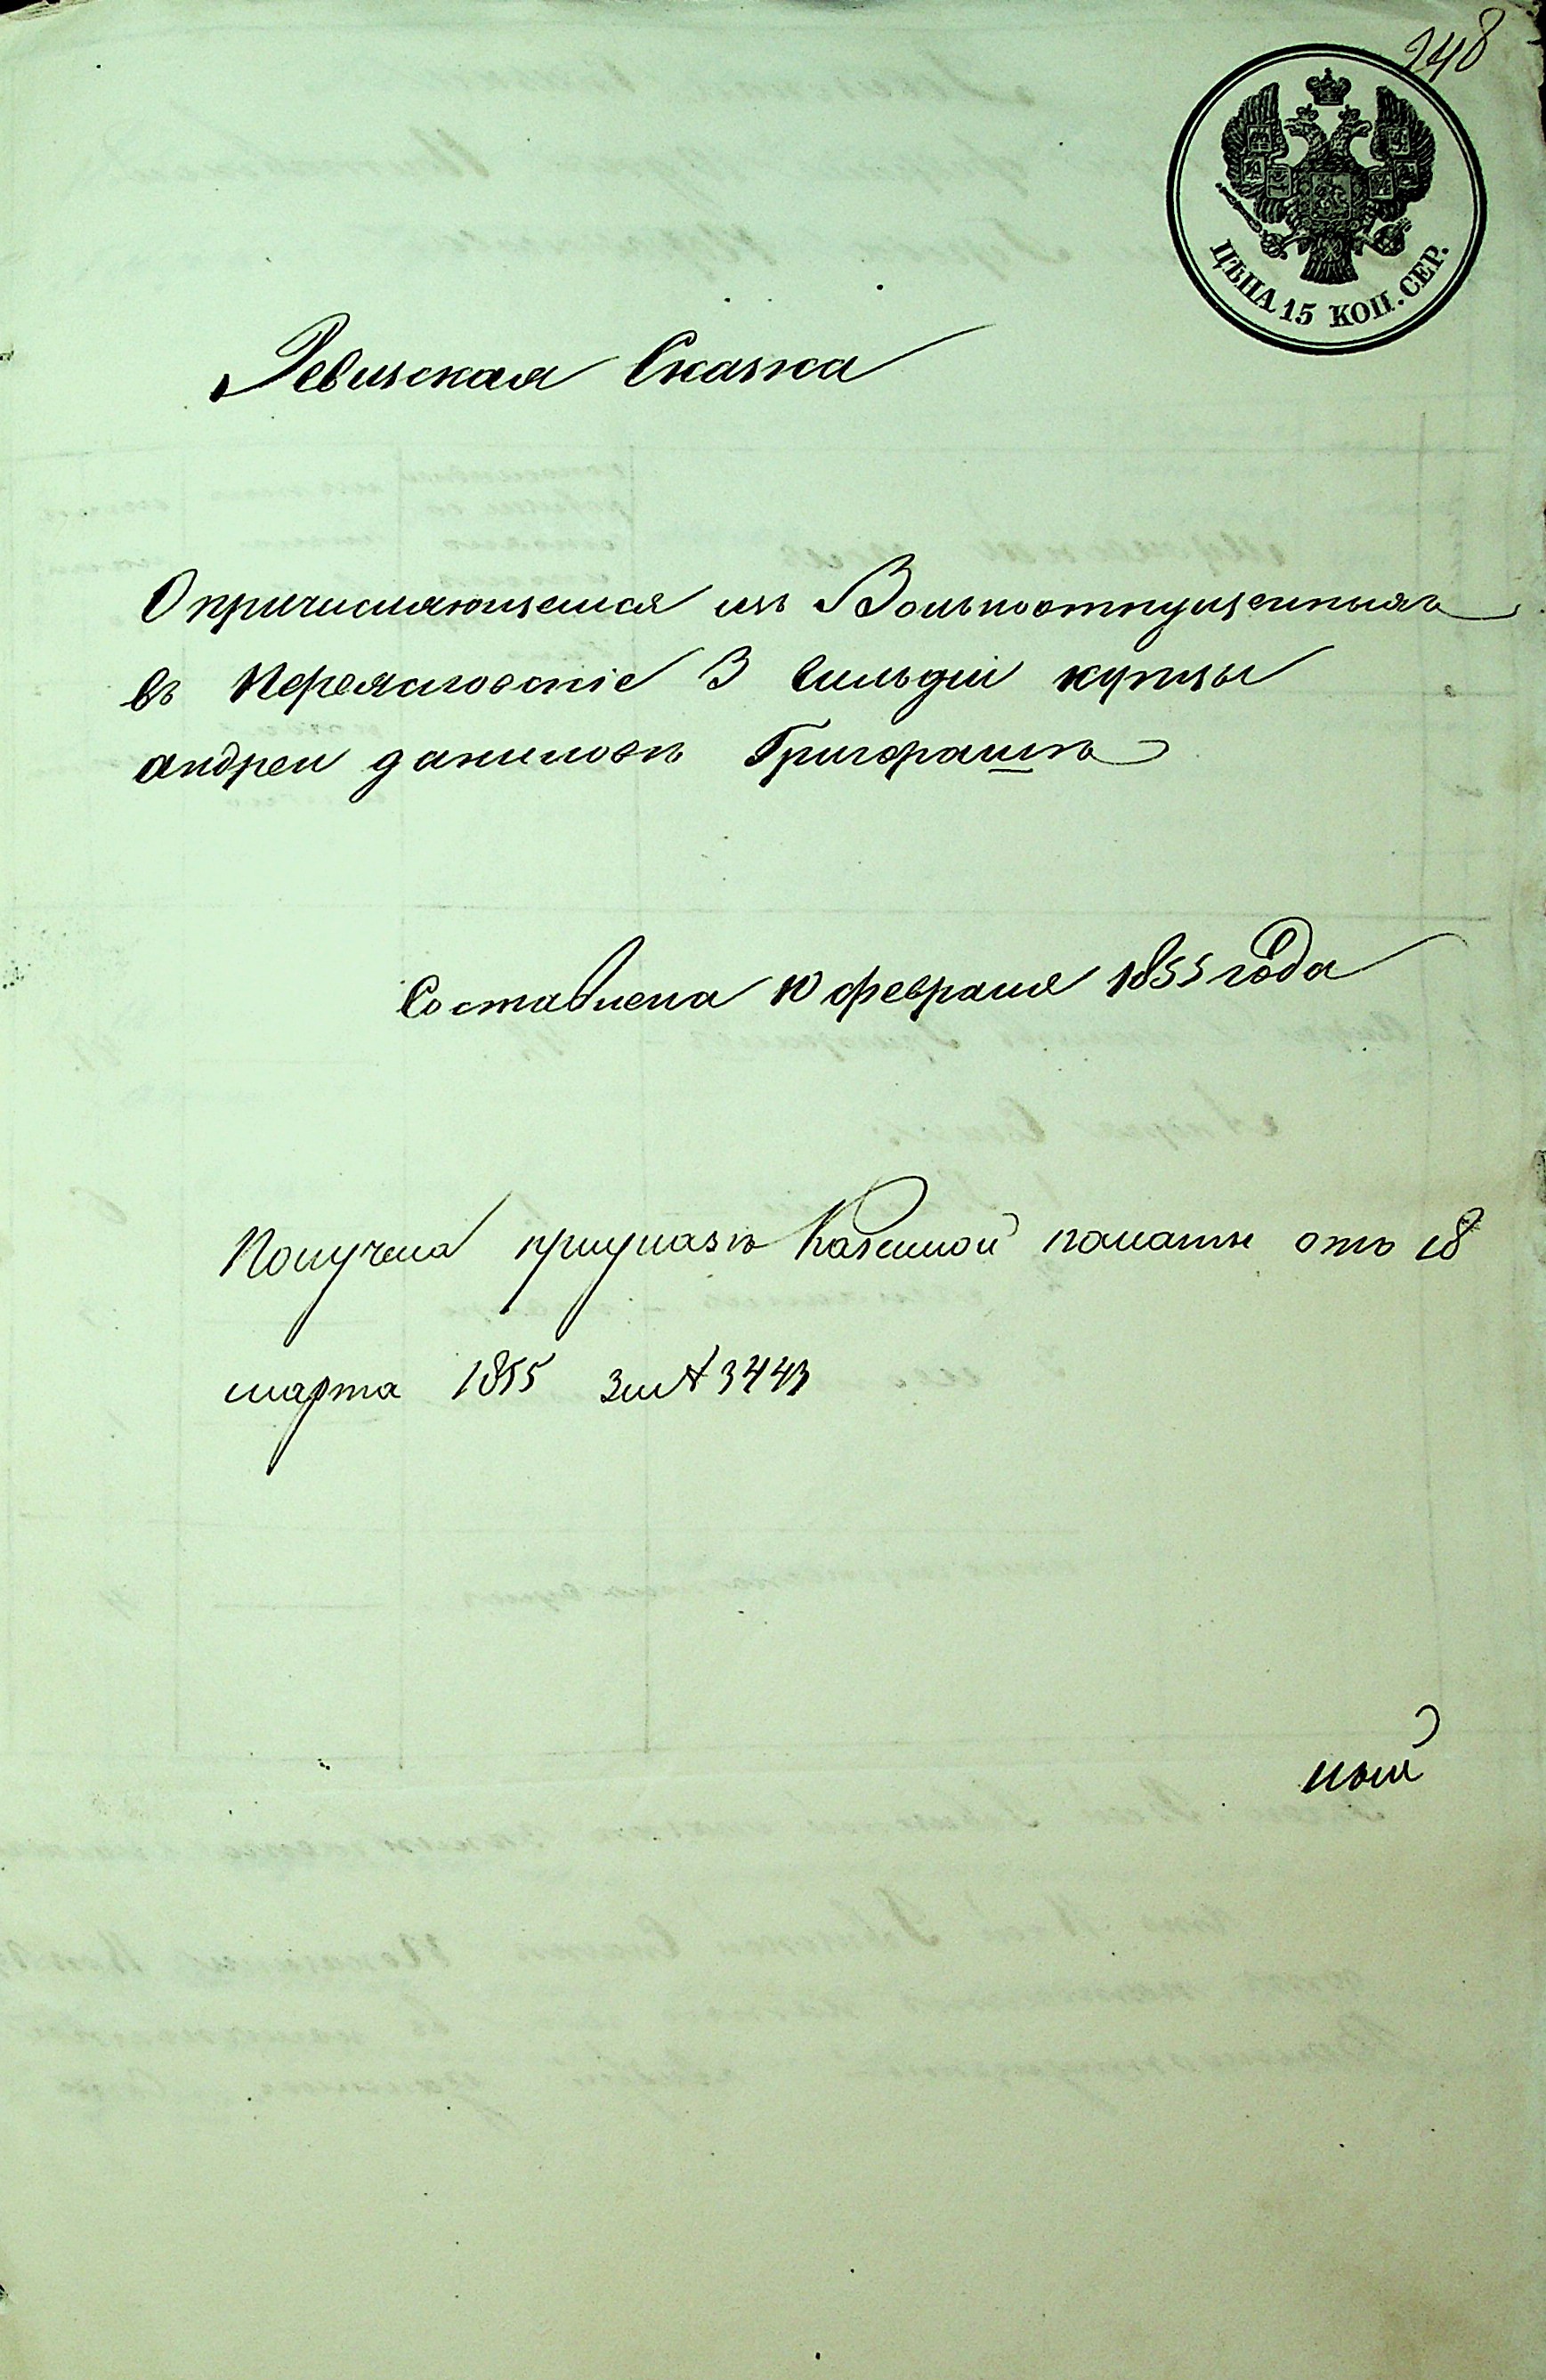 248
ЦѢНА 15 КОП. СЕР.
Ревизская Сказка
О причисляющемся изъ Вольноотпущенныхъ
въ Переяславскіе 3 Гильдіи купцы
андреи даниловѣ Григорашъ
Составлена 10 февраля 1855 года
Получена приуказѣ Казенной палаты отъ 18
марта 1855 за № 3443
ный